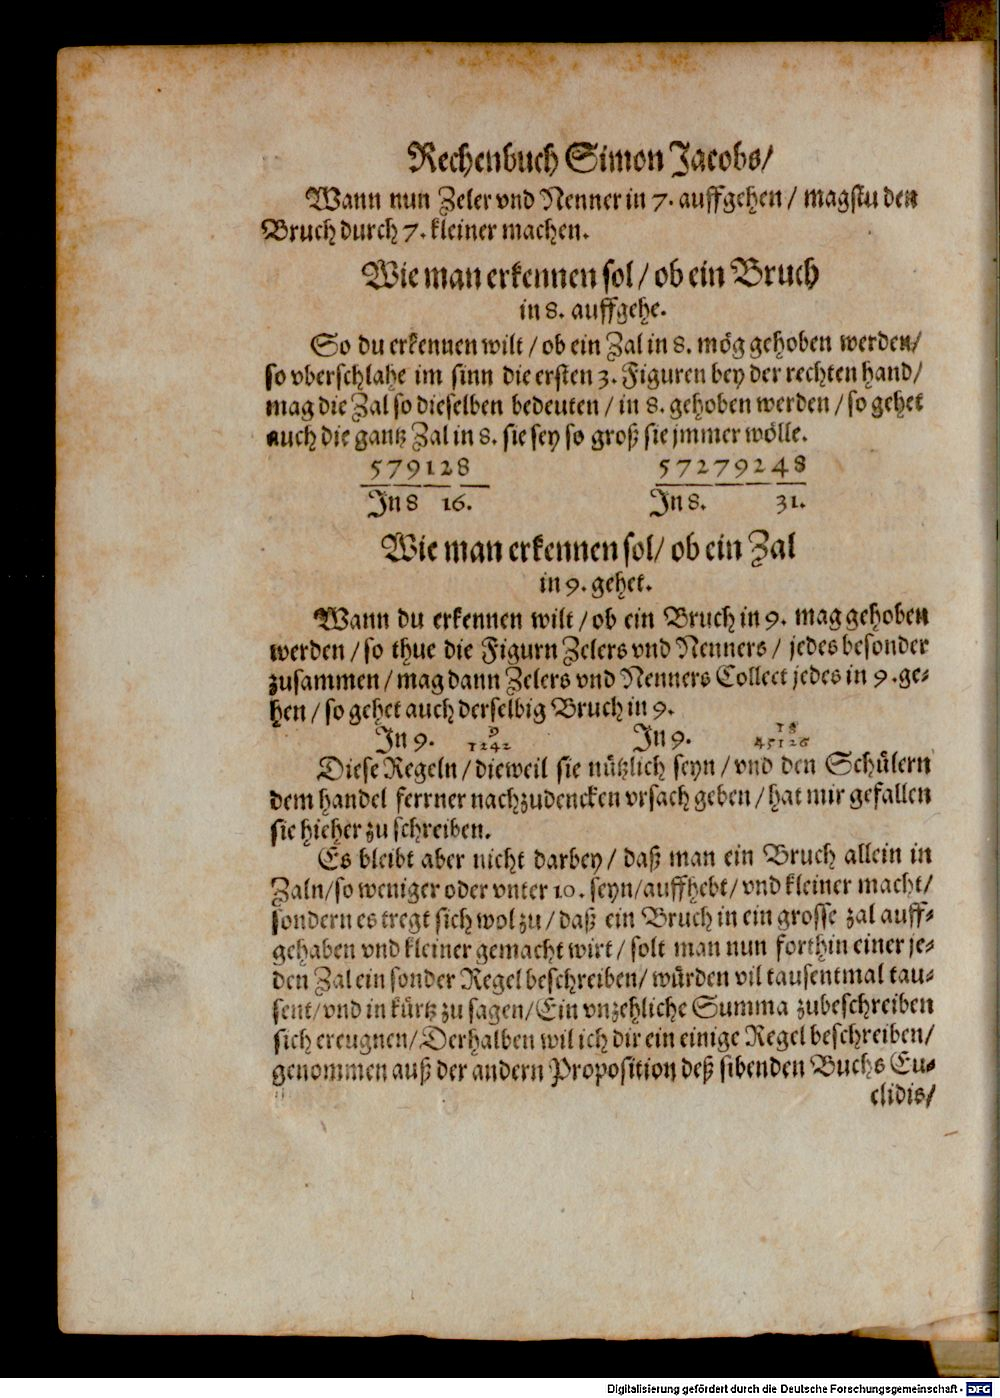 Rechenbuch Simon Jacobs/
Wann nun Zeler vnd Nenner in 7. auffgehen / magstu den
Bruch durch 7. kleiner machen.
Wie man erkennen sol / ob ein Bruch
in 8. auffgehe.
So du erkennen wilt / ob ein Zal in 8. mög gehoben werden/
so vberschlahe im sinn die ersten 3. Figuren bey der rechten hand/
mag die Zal so dieselben bedeuten / in 8. gehoben werden / so gehet
auch die gantz Zal in 8. sie sey so groß sie jmmer wölle.
579128 57279248
In 8 16. In 8. 31.
Wie man erkennen sol/ ob ein Zal
in 9. gehet.
Wann du erkennen wilt / ob ein Bruch in 9. mag gehoben
werden / so thue die Figurn Zelers vnd Nenners / jedes besonder
zusammen / mag dann Zelers vnd Nenners Collect jedes in 9 .ge-
hen / so gehet auch derselbig Bruch in 9.
In 9. 9 In 9. 18
1242 45126
Diese Regeln / dieweil sie nützlich seyn / vnd den Schülern
dem handel ferrner nachzudencken vrsach geben / hat mir gefallen
sie hieher zu schreiben.
Es bleibt aber nicht darbey / daß man ein Bruch allein in
Zaln/ so weniger oder vnter 10. seyn/ auffhebt/ vnd kleiner macht/
sondern es tregt sich wol zu / daß ein Bruch in ein grosse zal auff-
gehaben vnd kleiner gemacht wirt / solt man nun forthin einer je-
den Zal ein sonder Regel beschreiben/ würden vil tausentmal tau-
sent/ vnd in kürtz zu sagen/ Ein vnzehliche Summa zubeschreiben
sich ereugnen/ Derhalben wil ich dir ein einige Regel beschreiben/
genommen auß der andern Proposition deß sibenden Buchs Eu-
clidis/
Digitalisierung gefördert durch die Deutsche Forschungsgemeinschaft - DFG